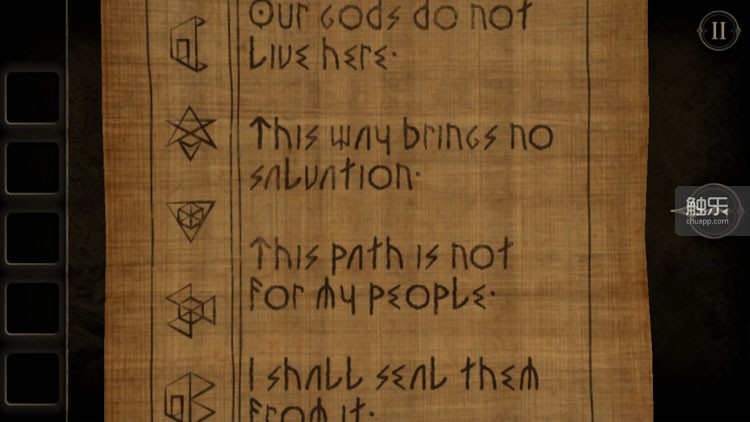 Our gods do not
live here.
This way brings no
salvation.
This path is not
for my people.
I shall seal them
from it.
触乐
chuapp.com